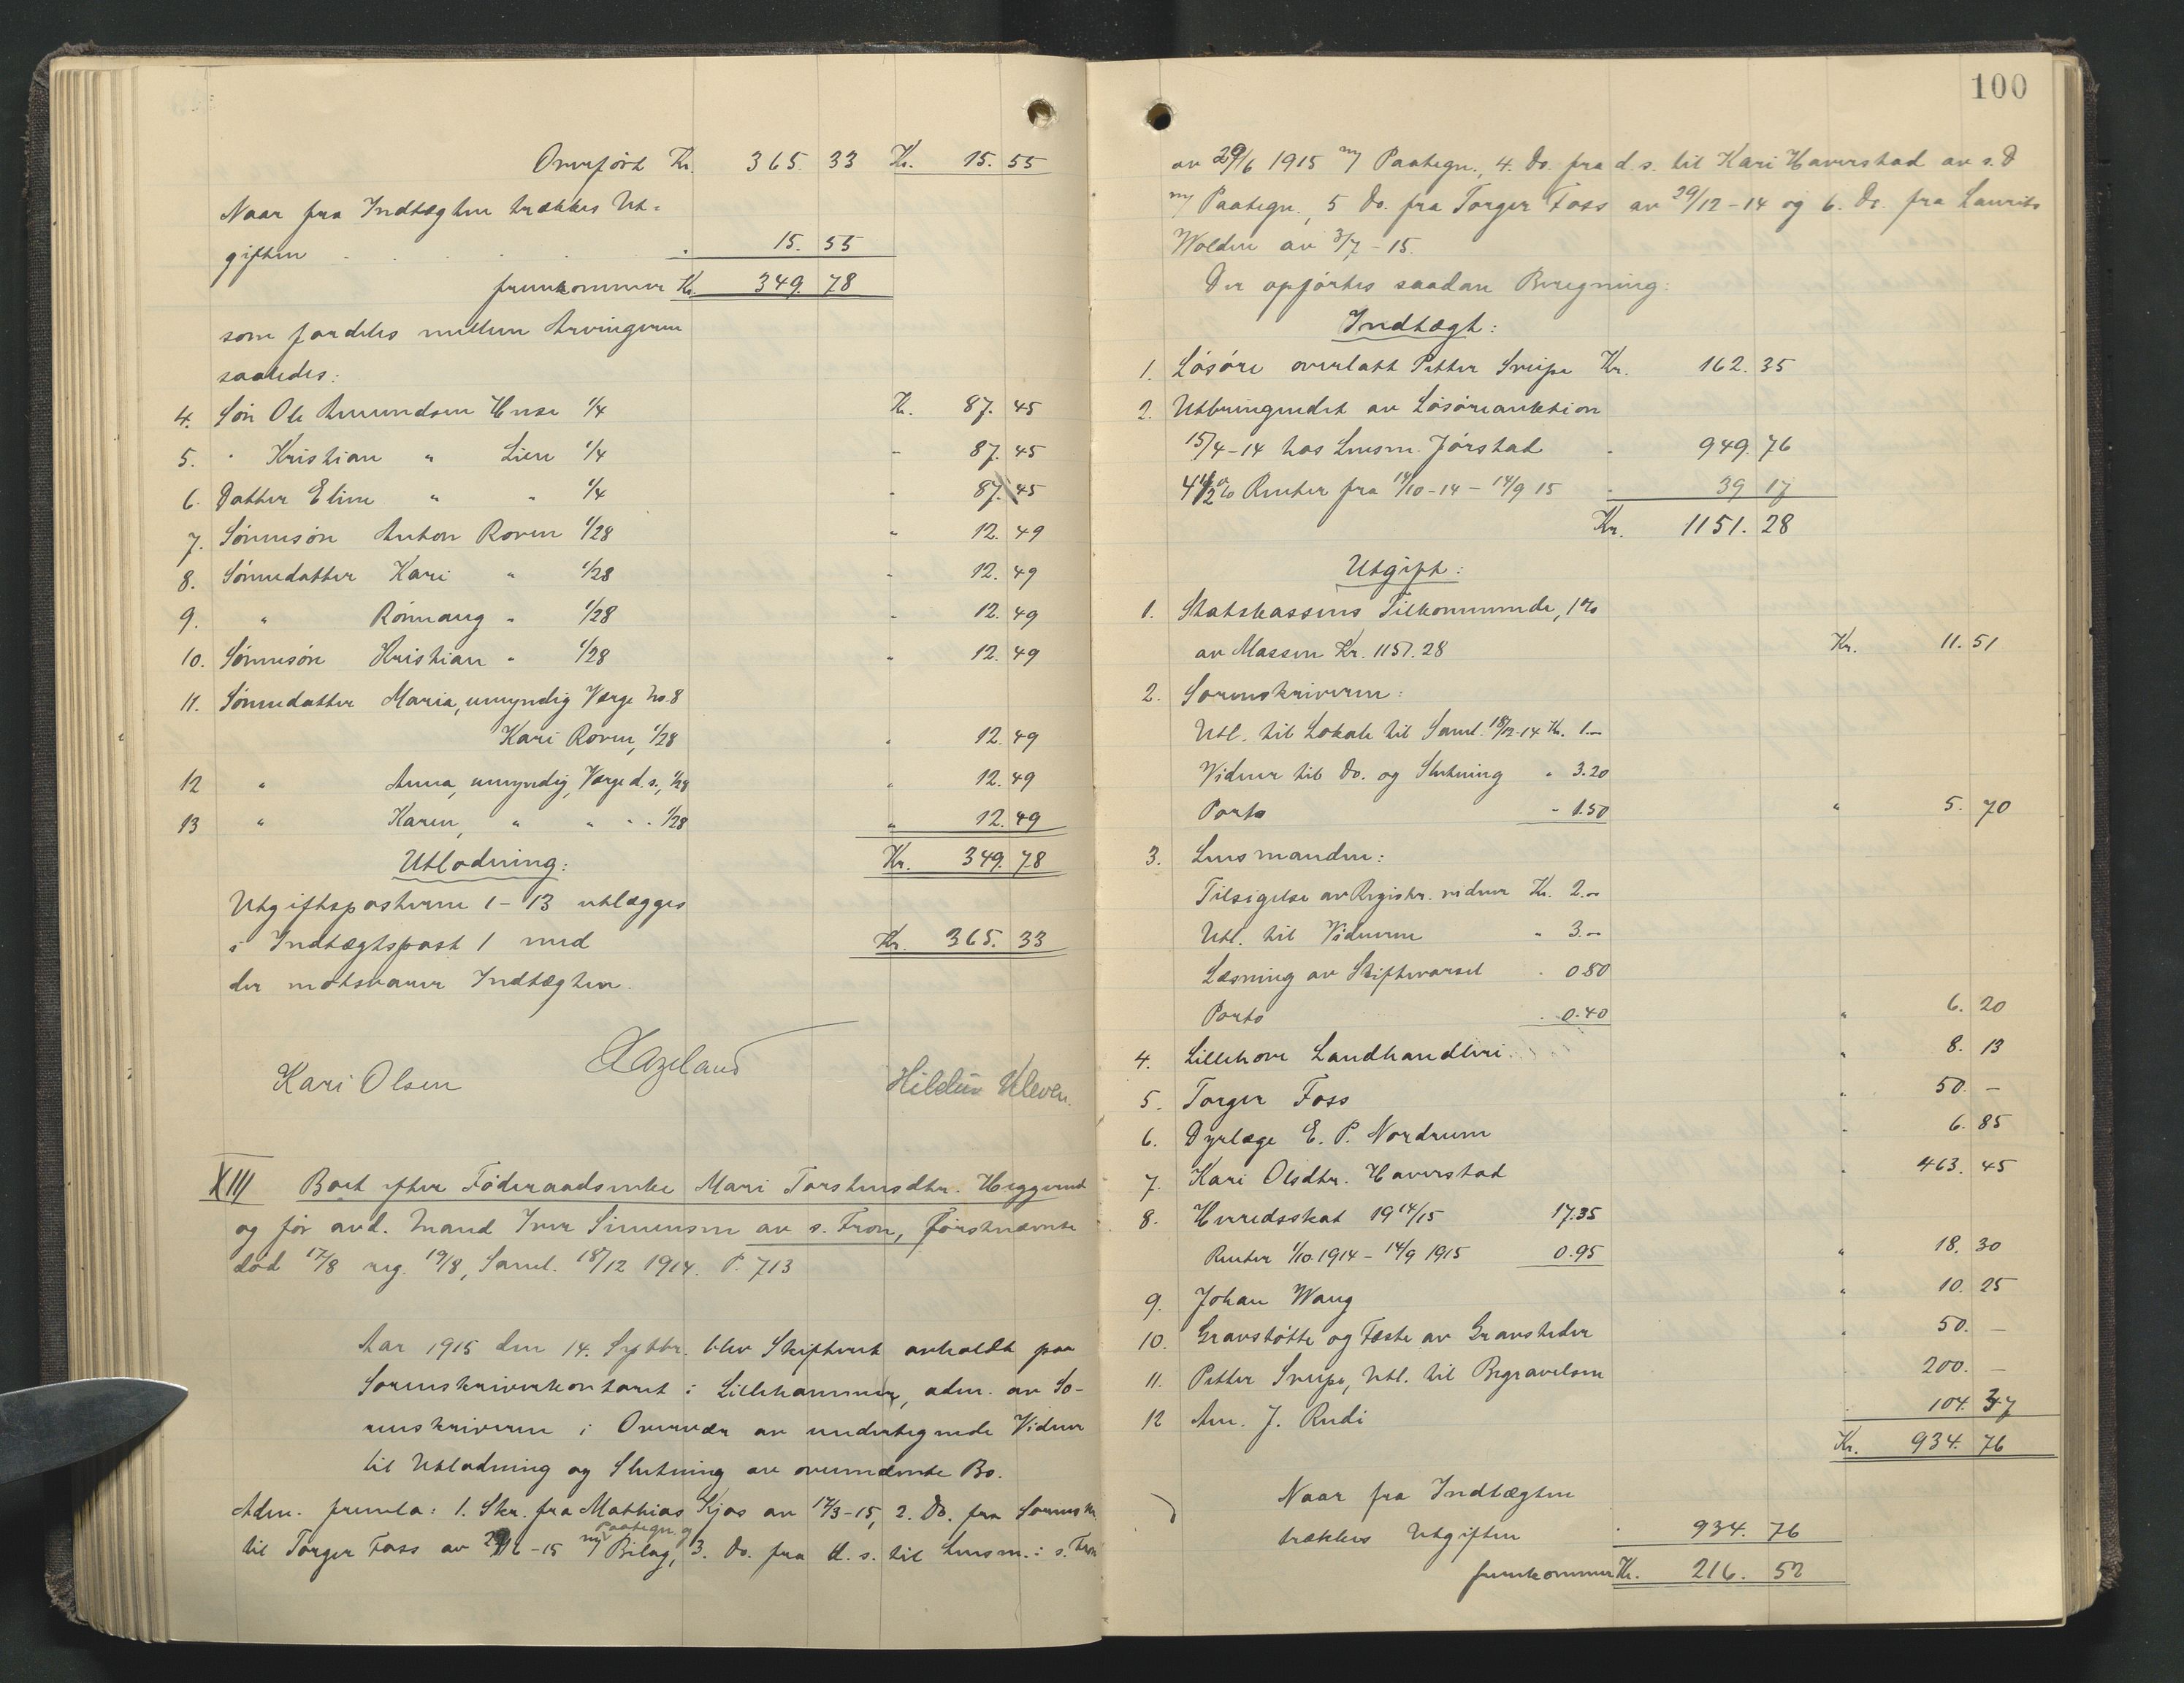 Overført Kr. 365. 33 Kr. 15. 55
Naar fra Indtægten trækkes Ut-
giften . . . . " 15. 55
fremkommer Kr. 349. 78
som fordeles mellem Arvingerne
saaledes:
4. Søn Ole Amundsen Huse 1/4 Kr. 87. 45
5. " Kristian " Lien 1/4 - 87. 45
6. Datter Eline " " 1/4 - 87. 45
7. Sønnesøn Anton Roven 1/28 " 12. 49
8. Sønnedatter Kari " 1/28 - 12. 49
9. " Rønnaug " 1/28 - 12. 49
10. Sønnesøn Kristian " 1/28 " 12. 49
11. Sønnedatter Maria, umyndig Værge No. 8
Kari Roven, 1/28 " 12. 49
12 " Anna, umyndig, Værge d. s., 1/28 " 12. 49
13 " Karen, " " " 1/28 " 12. 49
Utlodning: Kr. 349. 78
Utgiftsposterne 1-13 utlægges
i Indtægtspost 1 med Kr. 365. 33
der motsvarer Indtægten.
Kari Olsen Hildur Kleven.
XIII Boet efter Føderaadsenke Mari Torstensdtr. Heggerud
og før avd. Mand Iver Simensen av s. Fron, førstnævnte
død 17/8 reg. 19/8, Saml. 18/12 1914. P. 713
Aar 1915 den 14. Septbr. blev Skifteret avholdt paa
Sorenskriverkontoret i Lillehammer, adm. av So-
renskriveren i Overvær av undertegnede Vidner
til Utlodning og Slutning av ovennævnte Bo.
Adm. fremla: 1. Skr. fra Mathias Kjos av 17/3-15, 2. Do. fra Sorenskr.
Paategn. og
til Torger Foss av 29/6-15 m/ Bilag, 3. Do. fra d. s. til Lensm. i s. Fron
100
av 29/6 1915 m/ Paategn., 4. Do. fra d. s. til Kari Haverstad av s. D
m/ Paategn., 5 Do. fra Torger Foss av 29/12-14 og 6. Do. fra Laurits
Wolden av 3/7-15.
Der opførtes saadan Beregning:
Indtægt:
1. Løsøre overlatt Petter Sveipe Kr. 162. 35
2. Utbringendet av Løsøreauktion
15/4-14 hos Lensm. Jørstad " 949. 76
4 1/2 % Renter fra 14/10-14 - 14/9 15 " 39 17
Kr. 1151. 28
Utgift:
1. Statskassens Tilkommende, 1%
av Massen Kr. 1151.28 Kr. 11. 51
2. Sorenskriveren:
Utl. til Lokale til Saml. 18/12-14 Kr. 1.-
Vidner til Do. og Slutning " 3.20
Porto - 1.50 " 5. 70
3. Lensmanden:
Tilsigelse av Registr. vidner Kr. 2.-
Utl. til Vidnerne " 3.-
Læsning av Skiftevarsel - 0.80
Porto - 0.40 " 6. 20
4. Lillehove Landhandleri " 8. 13
5. Torger Foss " 50. -
6. Dyrlæge E. P. Nordrum - 6. 85
7. Kari Olsdtr. Haverstad " 463. 45
8. Herredsskat 1914/15 17.35
Renter 1/10 1914 - 14/9 1915 0.95 " 18. 30
9. Johan Waug " 10. 25
10. Gravstøtte og Fæste av Gravsteder " 50. -
11. Petter Sveipe, Utl. til Begravelsen 200. -
12 Am. J. Rudi 104. 37
Kr. 934. 76
Naar fra Indtægten
trækkes Utgiften " 934. 76
fremkommer Kr. 216. 52